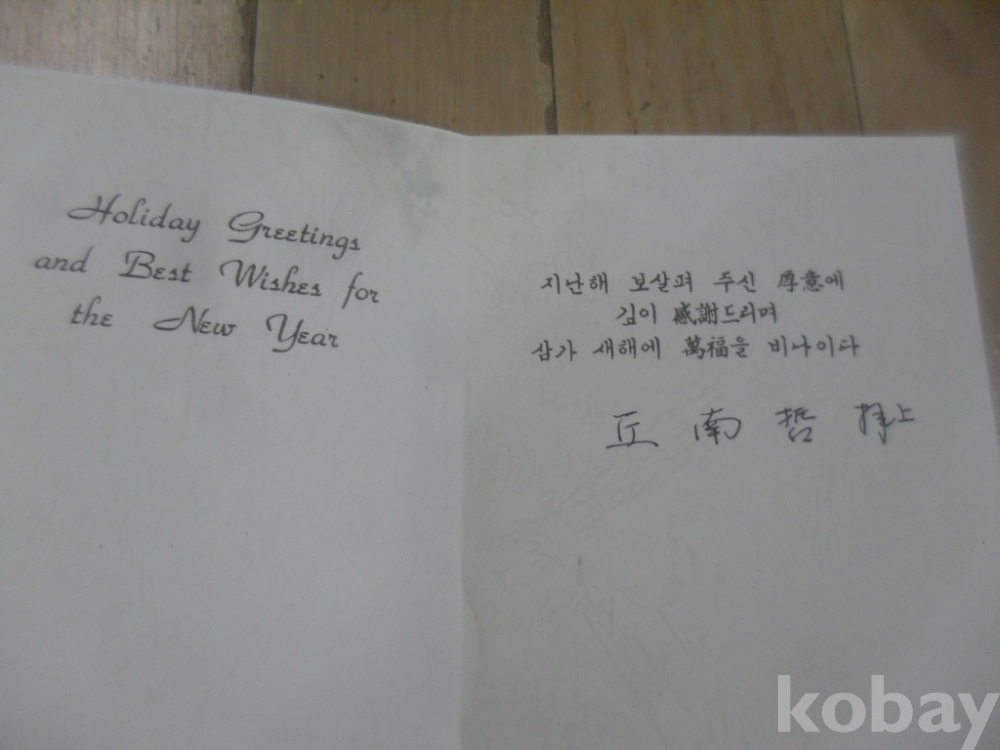 Holiday Greetings
and Best Wishes for
the New Year
지난해 보살펴 주신 厚意에
깊이 感謝드리며
삼가 새해에 萬福을 비나이다
丘南哲 拜上
kobay